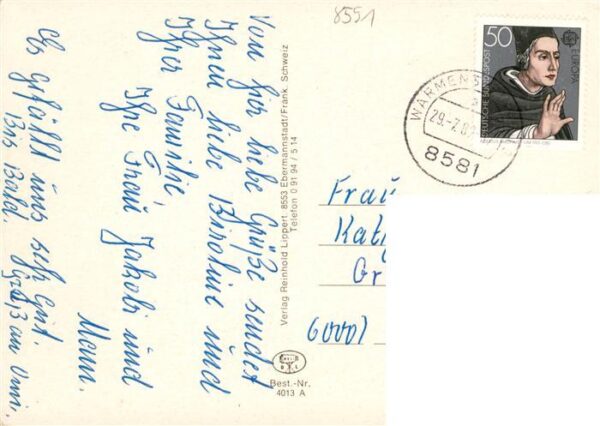 8591
Von hier liebe Grüße sendet
Ihnen liebe Biroline und
Ihrer Familie,
Ihre Frau Jakobi und
Mann.
Es gefällt uns sehr gut.
Bis Bald. Gruß an Omi.
Verlag Reinhold Lippert, 8553 Ebermannstadt/Fränk. Schweiz
Telefon 0 91 94 / 5 14
Best.-Nr.
4013 A
50
EUROPA
DEUTSCHE BUNDESPOST
WARMENS
29.-7.80
8581
Frau
Kat
Gr
6000